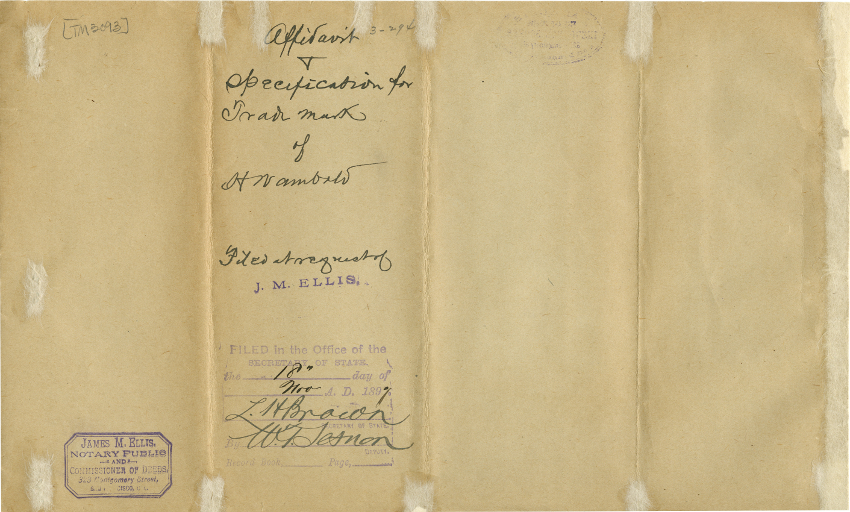 [TM3093]
Affidavit 3-294
+
Specification for
Trade mark
of
H Wambold
Filed at request of
J. M. ELLIS.
FILED in the Office of the
SECRETARY OF STATE.
the 18" day of
Nov A. D. 1897
L. H Brown
By W. T.
Record Book Page,
JAMES M. ELLIS,
NOTARY PUBLIC
AND
COMMISSIONER OF DEEDS,
Montgomery Street,